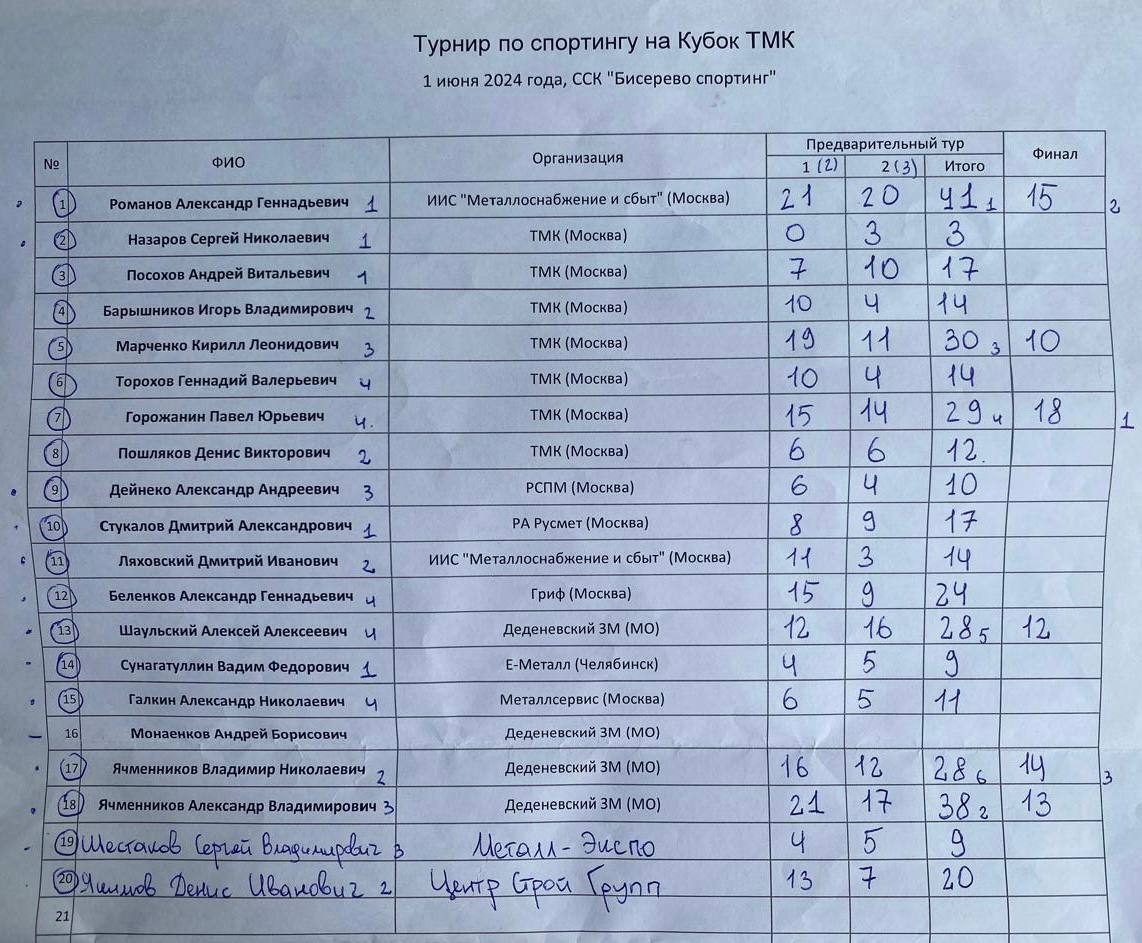 Турнир по спортингу на Кубок ТМК
1 июня 2024 года, ССК "Бисерово спортинг"
№ ФИО Организация Предварительный тур Финал
1 (2) 2 (3) Итого
1 Романов Александр Геннадьевич 1 ИИС "Металлоснабжение и сбыт" (Москва) 21 20 41 1 15 2
2 Назаров Сергей Николаевич 1 ТМК (Москва) 0 3 3
3 Посохов Андрей Витальевич 1 ТМК (Москва) 7 10 17
4 Барышников Игорь Владимирович 2 ТМК (Москва) 10 4 14
5 Марченко Кирилл Леонидович 3 ТМК (Москва) 19 11 30 3 10
6 Торохов Геннадий Валерьевич 4 ТМК (Москва) 10 4 14
7 Горожанин Павел Юрьевич 4. ТМК (Москва) 15 14 29 4 18 1
8 Пошляков Денис Викторович 2 ТМК (Москва) 6 6 12.
9 Дейнеко Александр Андреевич 3 РСПМ (Москва) 6 4 10
10 Стукалов Дмитрий Александрович 1 РА Русмет (Москва) 8 9 17
11 Ляховский Дмитрий Иванович 2 ИИС "Металлоснабжение и сбыт" (Москва) 11 3 14
12 Беленков Александр Геннадьевич 4 Гриф (Москва) 15 9 24
13 Шаульский Алексей Алексеевич 4 Деденевский ЗМ (МО) 12 16 28 5 12
14 Сунагатуллин Вадим Федорович 1 Е-Металл (Челябинск) 4 5 9
15 Галкин Александр Николаевич 4 Металлсервис (Москва) 6 5 11
16 Монаенков Андрей Борисович Деденевский ЗМ (МО)
17 Ячменников Владимир Николаевич 2 Деденевский ЗМ (МО) 16 12 28 6 14 3
18 Ячменников Александр Владимирович 3 Деденевский ЗМ (МО) 21 17 38 2 13
19 Шестаков Сергей Владимирович 3 Металл-Экспо 4 5 9
20 Якимов Денис Иванович 2 Центр Строй Групп 13 7 20
21